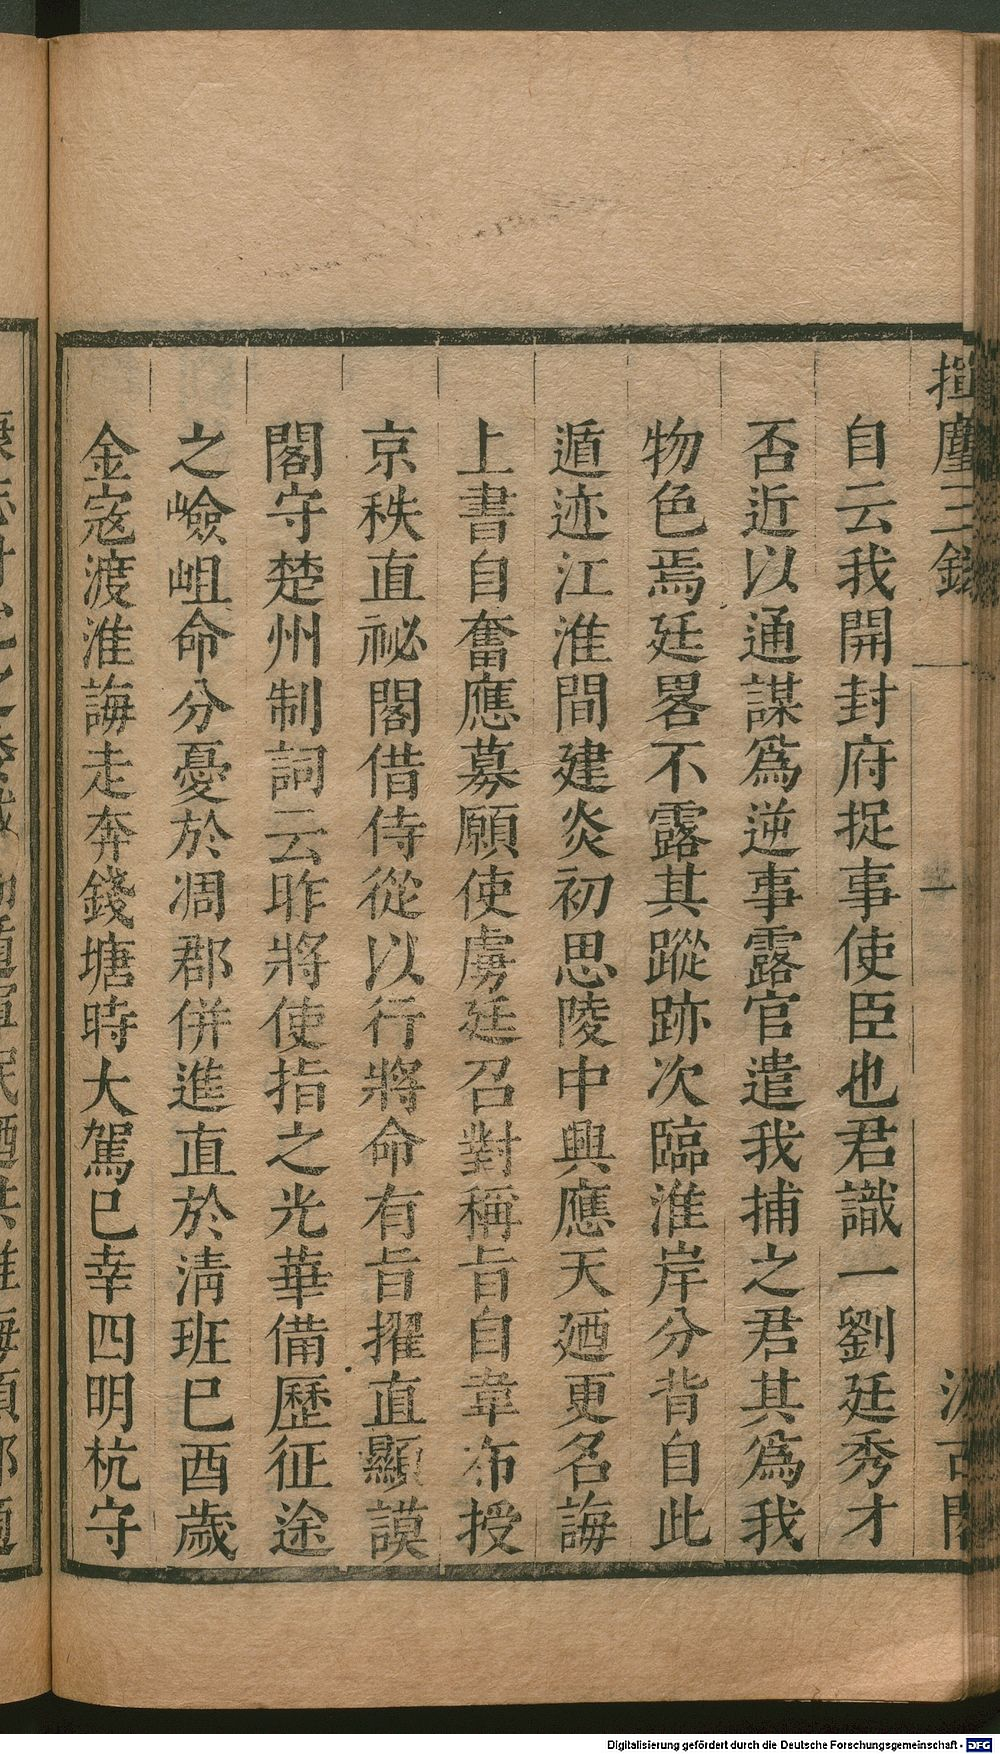 揮麈三錄
一
自云我開封府捉事使臣也君識一劉廷秀才
否近以通謀爲逆事露官遣我捕之君其爲我
物色焉廷畧不露其蹤跡次臨淮岸分背自此
遁迹江淮間建炎初思陵中興應天廼更名誨
上書自奮應募願使虜廷召對稱旨自韋布授
京秩直祕閣借侍從以行將命有旨擢直顯謨
閣守楚州制詞云昨將使指之光華備歷征途
之嶮岨命分憂於凋郡併進直於淸班巳酉歲
金寇渡淮誨走奔錢塘時大駕巳幸四明杭守
Digitalisierung gefördert durch die Deutsche Forschungsgemeinschaft - DFG